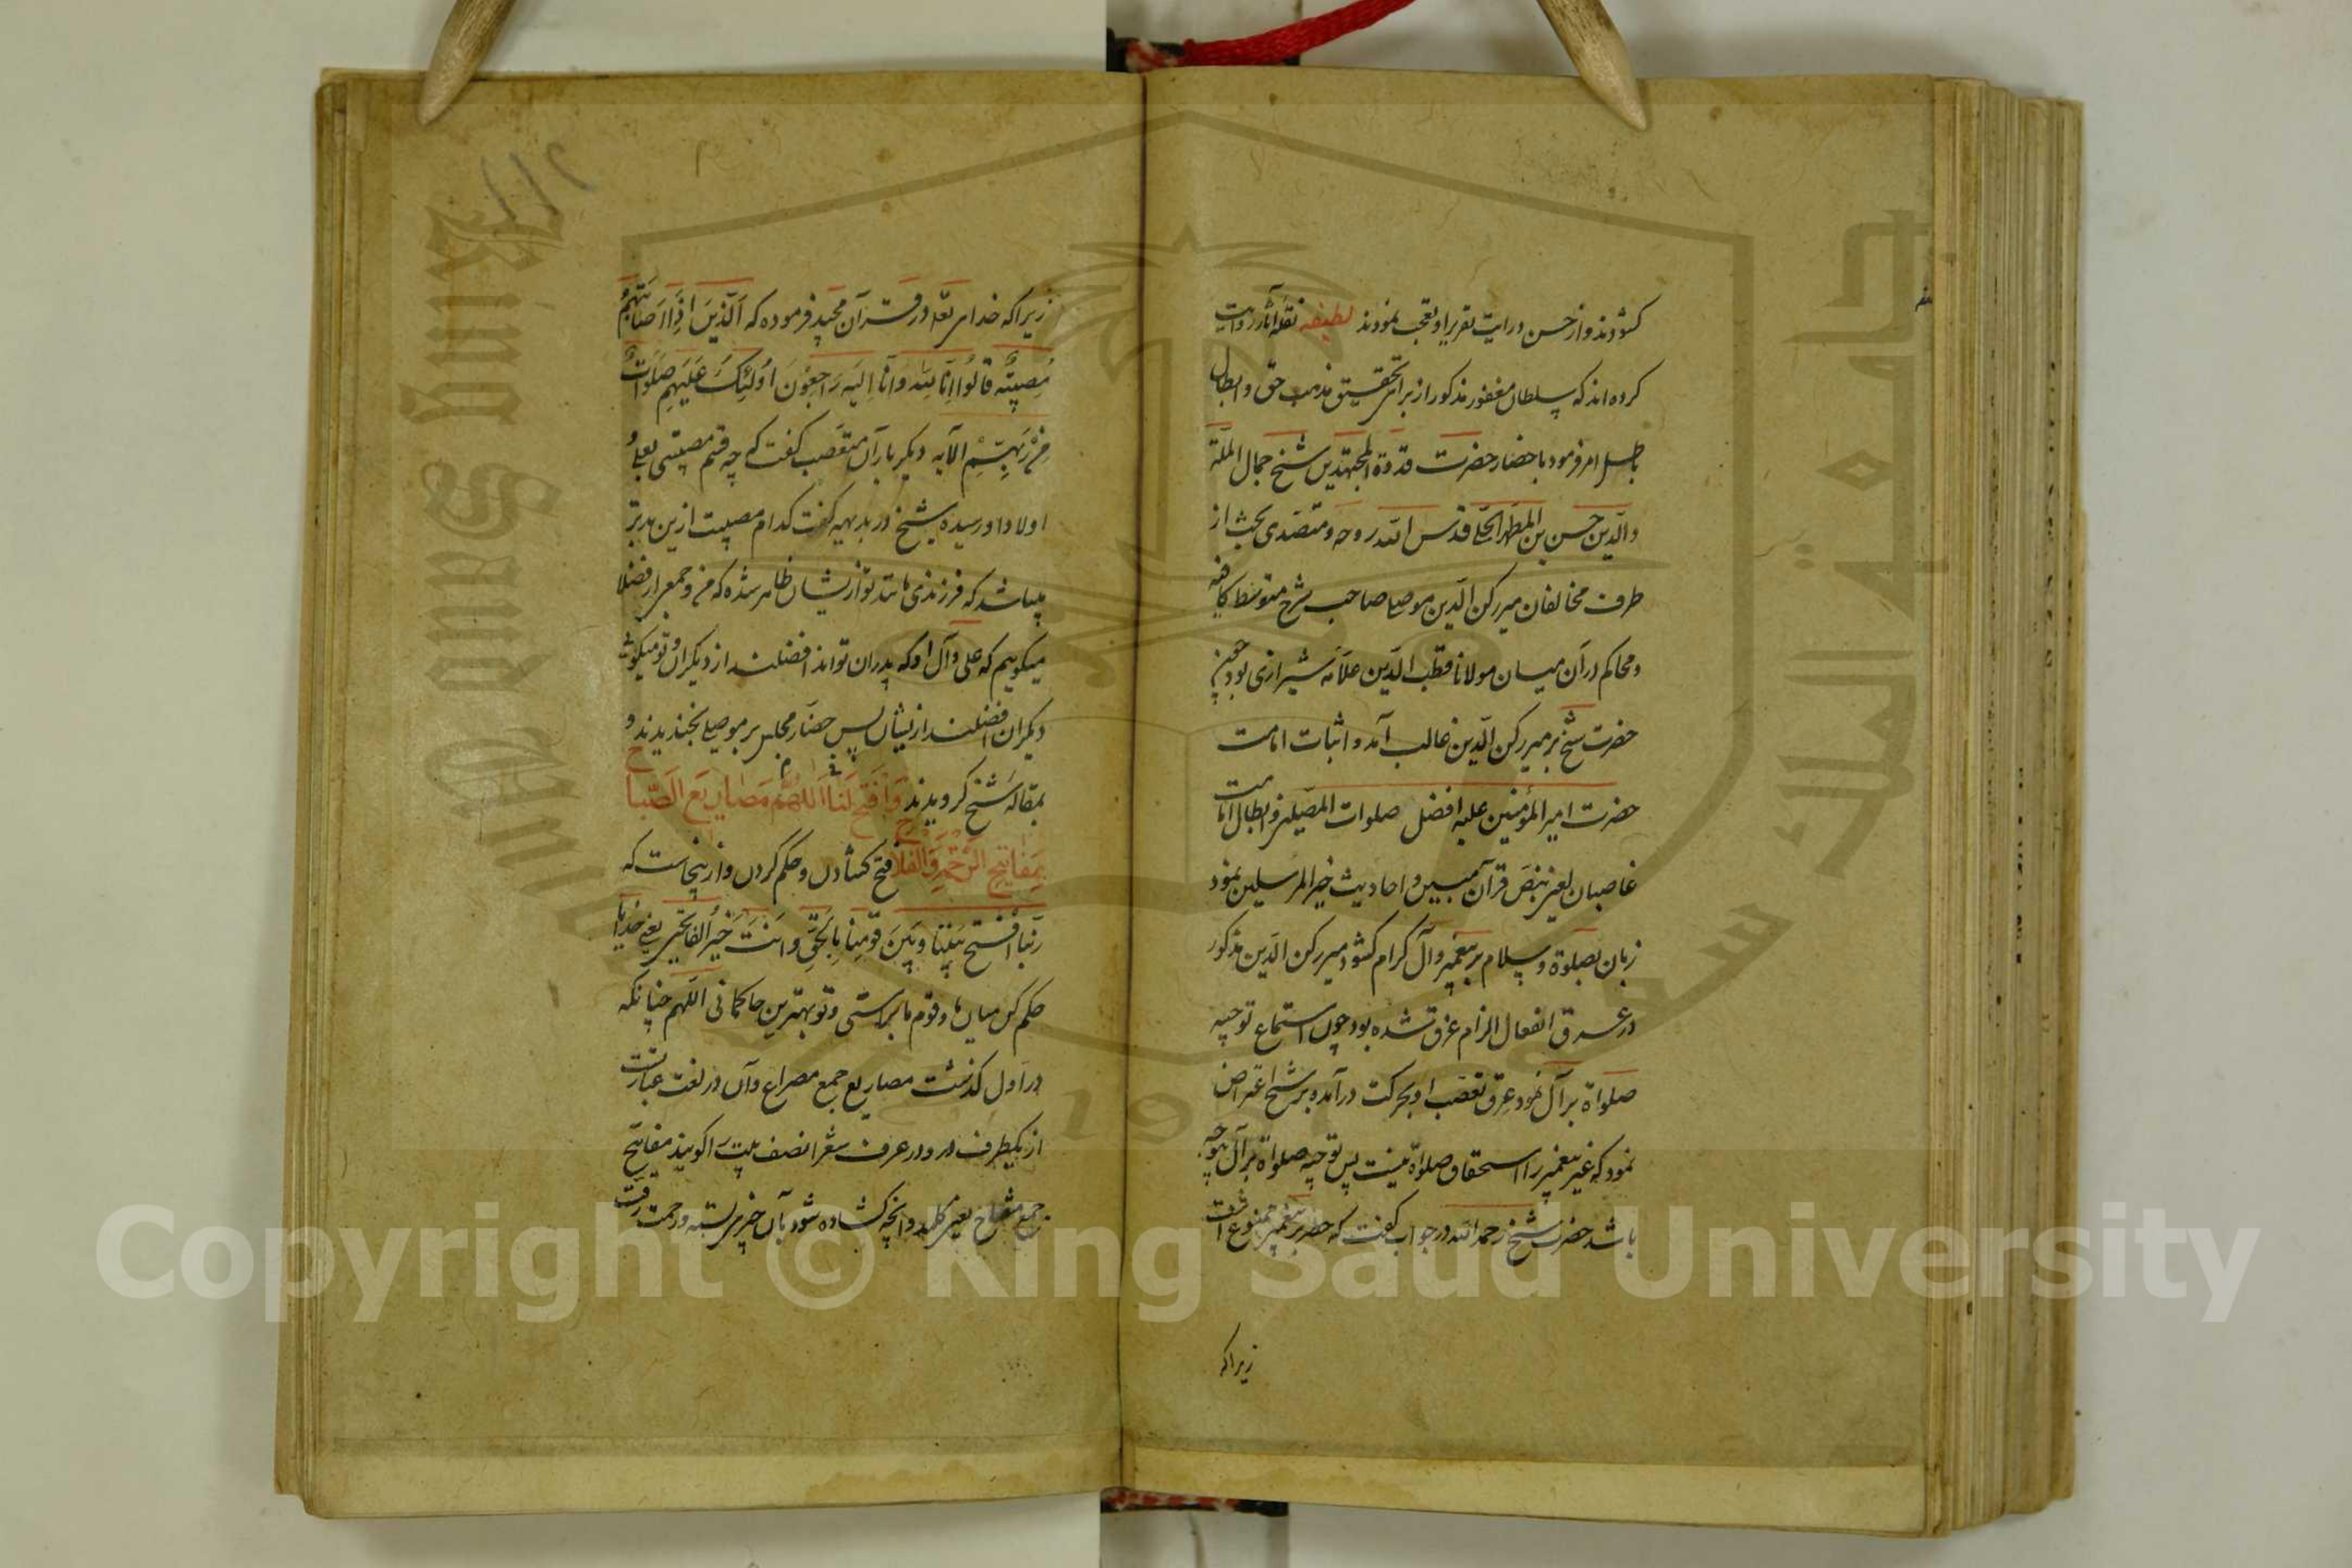 كشودند و از حسن درايت تقرير او تعجب نمودند لطيفه نقله آثار روايت
كرده اند كه سلطان مغفور مذكور از براى تحقيق مذهب حق و ابطال
باطل امر فرمود باحضار حضرت قدوة المجتهدين شيخ جمال الملّة
والدّين حسن بن المطهر الحلّى قدس اللّه روحه و متصدى بحث از
طرف مخالفان مير ركن الدّين موصلى صاحب شرح متوسط كافيه
و محاكم در آن ميان مولانا قطب الدّين علاّمه شيرازى بود چون
حضرت شيخ بر مير ركن الدّين غالب آمد و اثبات امامت
حضرت امير المؤمنين عليه افضل صلوات المصلّين و ابطال امامت
غاصبان لعين بنص قرآن مبين و احاديث خير المرسلين نمود
زبان بصلوة و سلام بر پيغمبر و آل كرام كشود مير ركن الدّين مذكور
در عرق انفعال الزام غرق شده بود چون استماع توجيه
صلواة بر آل نمود عرق تعصّب او بحركت در آمده بر شيخ اعتراض
نمود كه غير پيغمبر را استحقاق صلواة نيست پس توجيه صلواة بر آل بچه وجه
باشد حضرت شيخ رحمه اللّه در جواب كفت كه حصر بر پيغمبر ممنوع است
زيرا كه
زيرا كه خداى تعالى در قرآن مجيد فرموده كه اَلَّذينَ اِذا اَصابَتْهُمْ
مُصيبَةٌ قالُوا اِنّا لِلّهِ وَ اِنّا اِلَيْهِ راجِعُونَ اُولئِكَ عَلَيْهِمْ صَلَواتٌ
مِنْ رَبِّهِمْ الآيه ديكر بار آن متعصّب كفت كه چه قسم مصيبتى بعلى و
اولاد او رسيده شيخ در بديهه كفت كدام مصيبت ازين بدتر
ميباشد كه فرزندى مانند تو از ايشان ظاهر شده كه من و جمعى از فضلا
ميكوييم كه على و آل او كه پدران تواند افضلند از ديكران و تو ميكوئى
ديكران افضلند از ايشان پس حضّار مجلس بر موصلى بخنديدند و
بمقاله شيخ كرويدند وَافْتَحْ لَنَا اَللّهُمَّ مَصاريعَ الصَّباحِ
بِمَفاتيحِ الرَّحْمَةِ وَالْفَلاحِ فتح كشادن و حكم كردن و از ينجاست كه
رَبَّنَا افْتَحْ بَيْنَنا وَ بَيْنَ قَوْمِنا بِالْحَقِّ وَ اَنْتَ خَيْرُ الْفاتِحينَ يعنى خدايا
حكم كن ميان ما و قوم ما براستى و تو بهترين حاكمانى اللّهم چنانكه
در اول كذشت مصاريع جمع مصراع و آن در لغت عبارتست
از يكطرف در و در عرف شعرا نصف بيت را كويند مفاتيح
جمع مفتاح يعنى كليد و آنچه كشاده شود بآن چيز بسته و رحمت رقّت
Copyright © King Saud University
King Saud University
جامعة الملك سعود